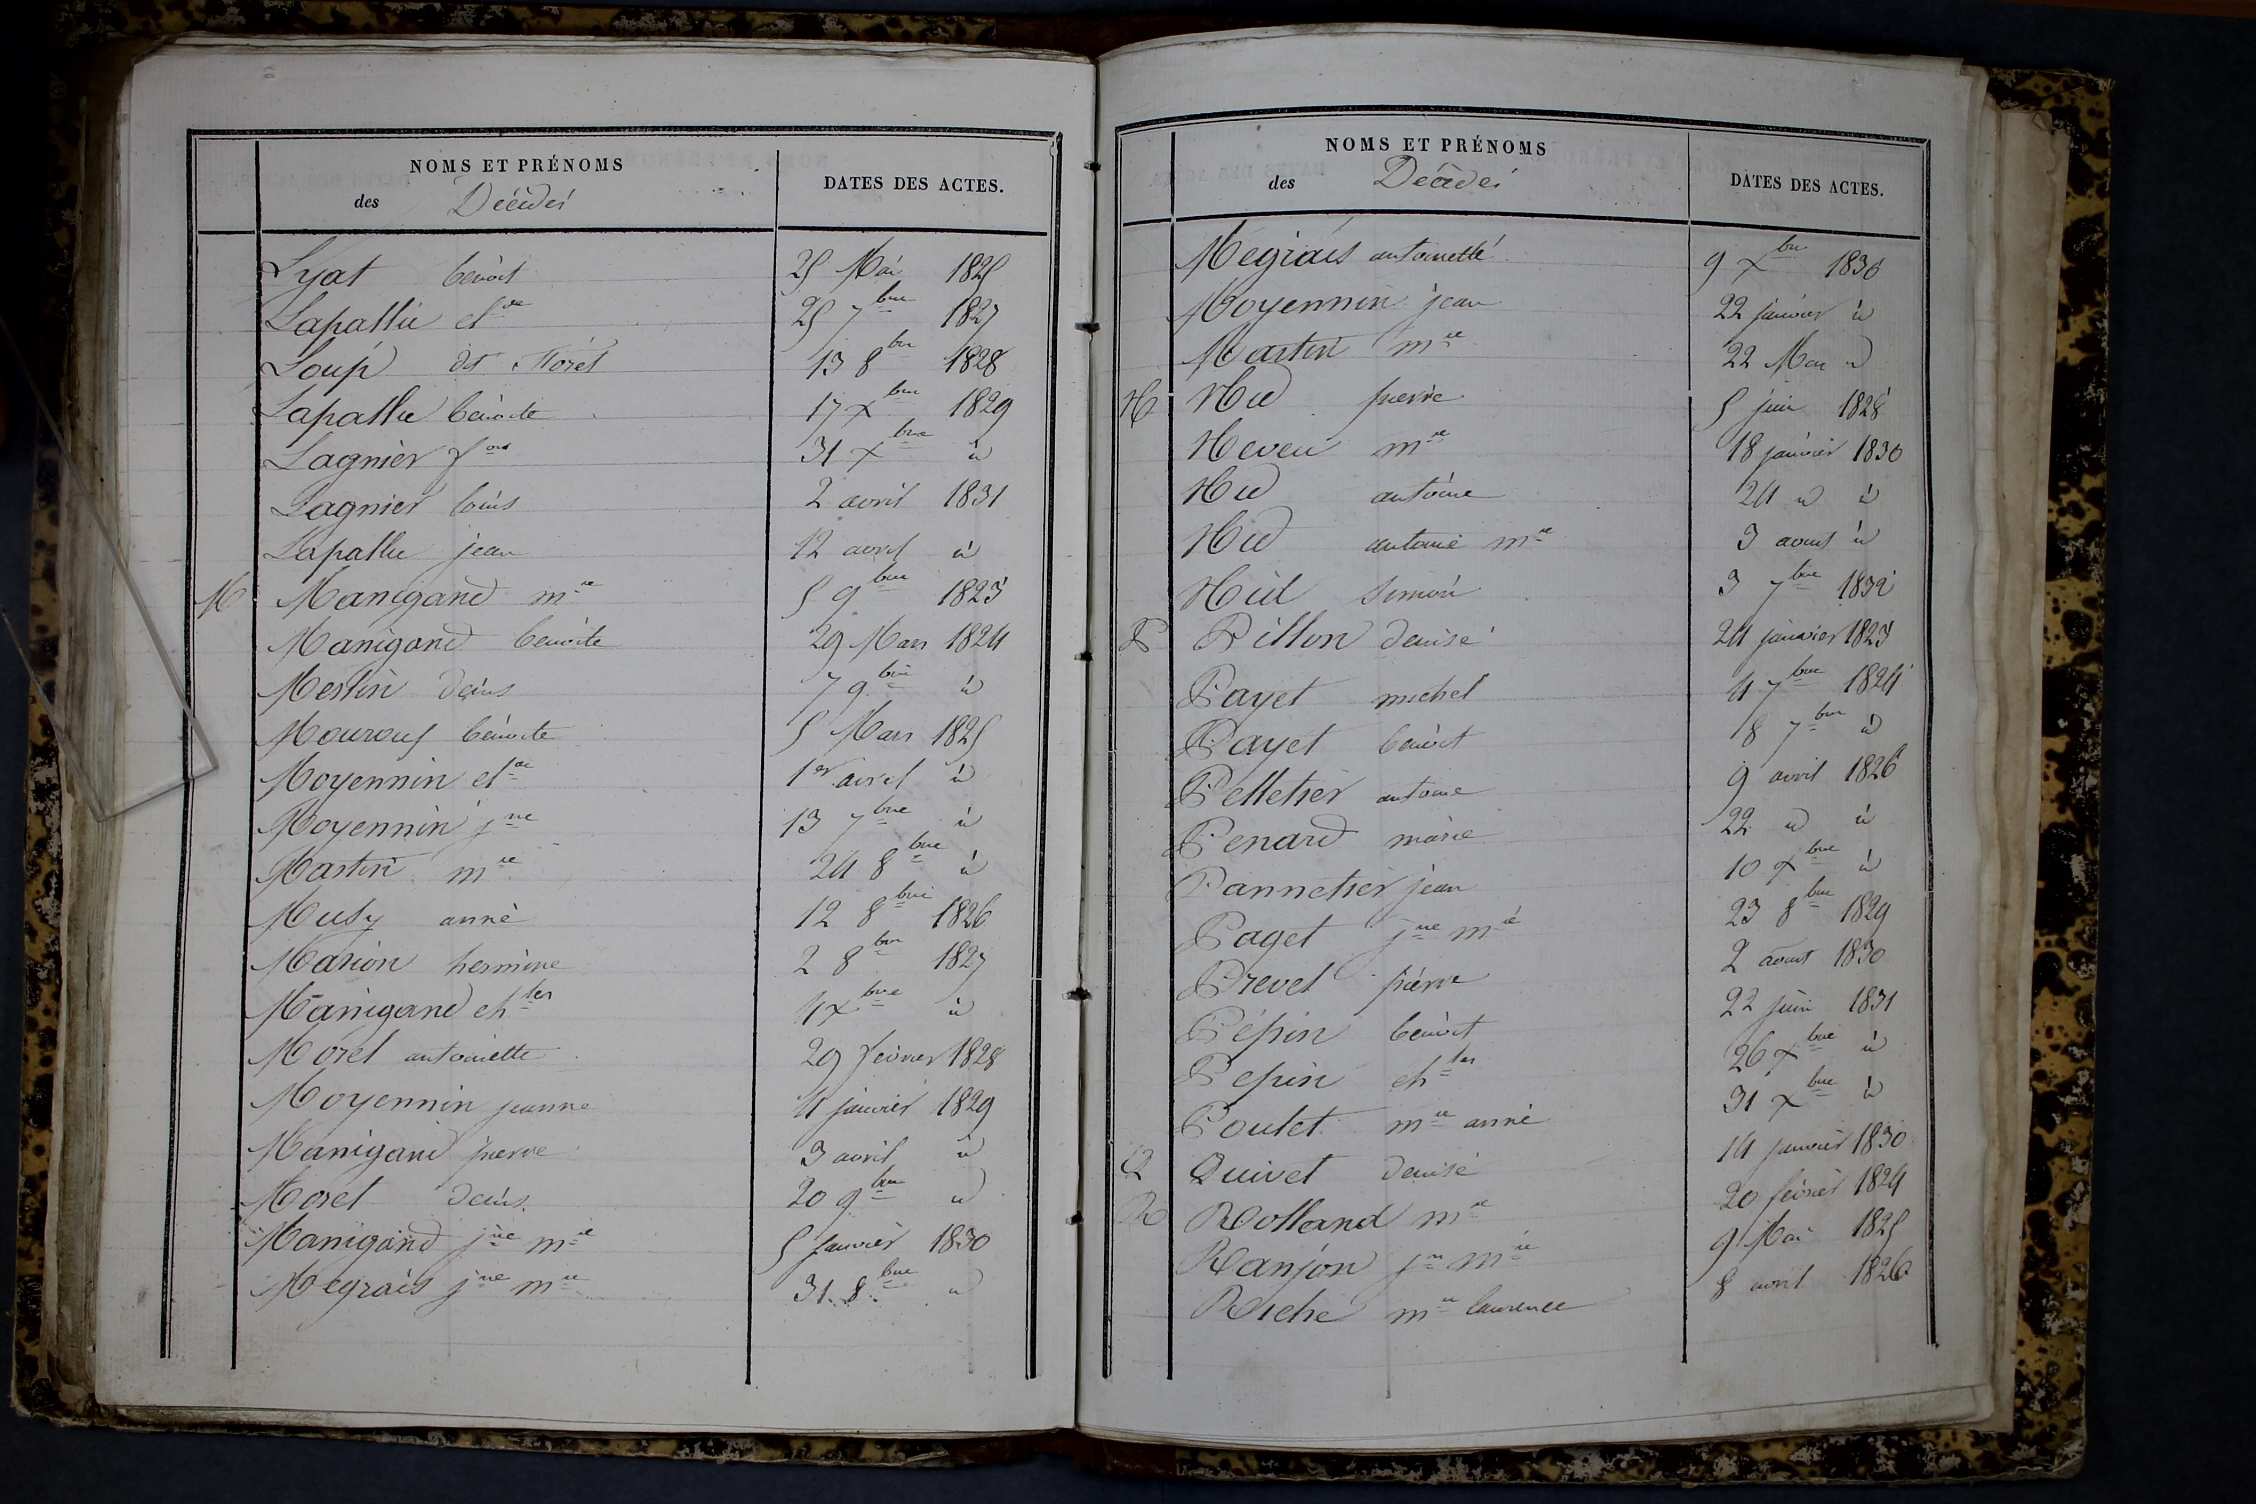 NOMS ET PRÉNOMS
des Décédés
DATES DES ACTES.
Lyat benoit 25 Mai 1825
Lapallu cl^de 25 7^bre 1827
Loup dit Forêt 13 8^bre 1828
Lapallu benoite 17 X^bre 1829
Lagnier f^ois 31 X^bre id
Lagnier louis 2 avril 1831
Lapallu jean 12 avril id
M Manigand m^ie 5 9^bre 1823
Manigand benoite 29 Mars 1824
Merlin denis 7 9^bre id
Mouroux benoite 5 Mars 1825
Moyennin cl^de 1^er avril id
Moyennin j^ne 13 7^bre id
Martin m^ie 24 8^bre id
Musy anne 12 8^bre 1826
Marion hermine 2 8^bre 1827
Manigand ch^les 4 X^bre id
Morel antoinette 29 février 1828
Moyennin jeanne 4 janvier 1829
Manigand pierre 3 avril id
Morel denis 20 9^bre id
Manigand j^ne m^ie 5 janvier 1830
Megrais j^ne m^ie 31 8^bre id
NOMS ET PRÉNOMS
des Décédés
DATES DES ACTES.
Megrais antoinette 9 X^bre 1830
Moyennin jean 22 janvier id
Martin m^ie 22 Mai id
N Nid pierre 5 juin 1828
Neveu m^ie 18 janvier 1830
Nid antoine 24 id id
Nid antoine m^ie 3 aout id
Nid Simon 3 7^bre 1832
P Pillon denise 24 janvier 1823
Payet michel 4 7^bre 1824
Payet benoit 18 7^bre id
Pelletier antoine 9 avril 1826
Penard marie 22 id id
Pannetier jean 10 X^bre id
Paget j^ne m^ie 23 8^bre 1829
Prevel pierre 2 aout 1830
Pépin benoit 22 juin 1831
Pepin ch^les 26 X^bre id
Poulet m^ie anne 31 X^bre id
Q Quivet denise 14 janvier 1830
R Rolland m^ie 20 février 1824
Ranjon j^ne m^ie 9 Mai 1825
Riche m^ie laurence 8 avril 1826